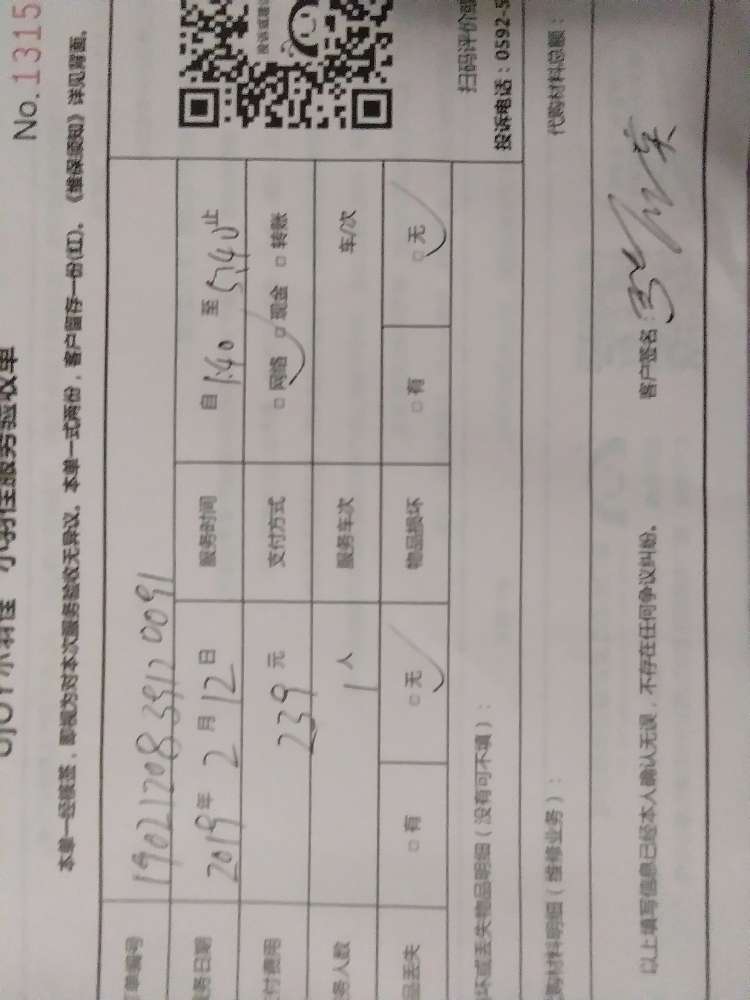 No.1315
小羽佳服务验收单
本单一经核签，即视为对本次服务验收无异议。本单一式两份，客户留存一份(红)。《维保须知》详见背面。
单编号 190212083912 0091
务日期 2019年 2月 12日 服务时间 自 1:40 至 5:40 止
付费用 239元 支付方式 □网络 □现金 □转账
务人数 1人 服务车次 车/次
品丢失 □有 □无 物品损坏 □有 □无
坏或丢失物品明细（没有可不填）：
扫码评价
投诉电话：0592-5
购材料明细（维修业务）： 代购材料总额：
以上填写信息已经本人确认无误，不存在任何争议纠纷。 客户签名：